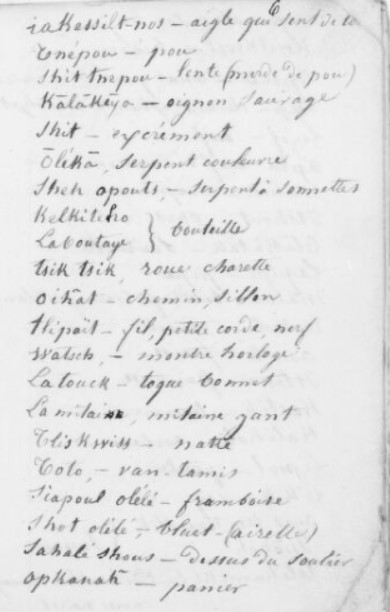 iakessilt-nos – aigle qui sent de la
Enépou – pou
Shit tnepou – lente (merde de pou)
Kalakéya – oignon sauvage
Shit – excrément
Ōlékā, serpent couleuvre
Shek opouts, – serpent à sonnettes
Kelkiteho
Laboutaye } bouteille
tsik tsik, roue charette
oihat – chemin, sillon
tlipaït – fil, petite corde, nerf
Watsch, – montre horloge
Latouck – toque bonnet
La mitain, mitaine gant
Tliskwiss – natte
Toto, – van tamis
Siapoul olélé – framboise
Shot olélé, – bluet – (airelle)
Sahalé shous – dessus du soulier
Opkanah – panier